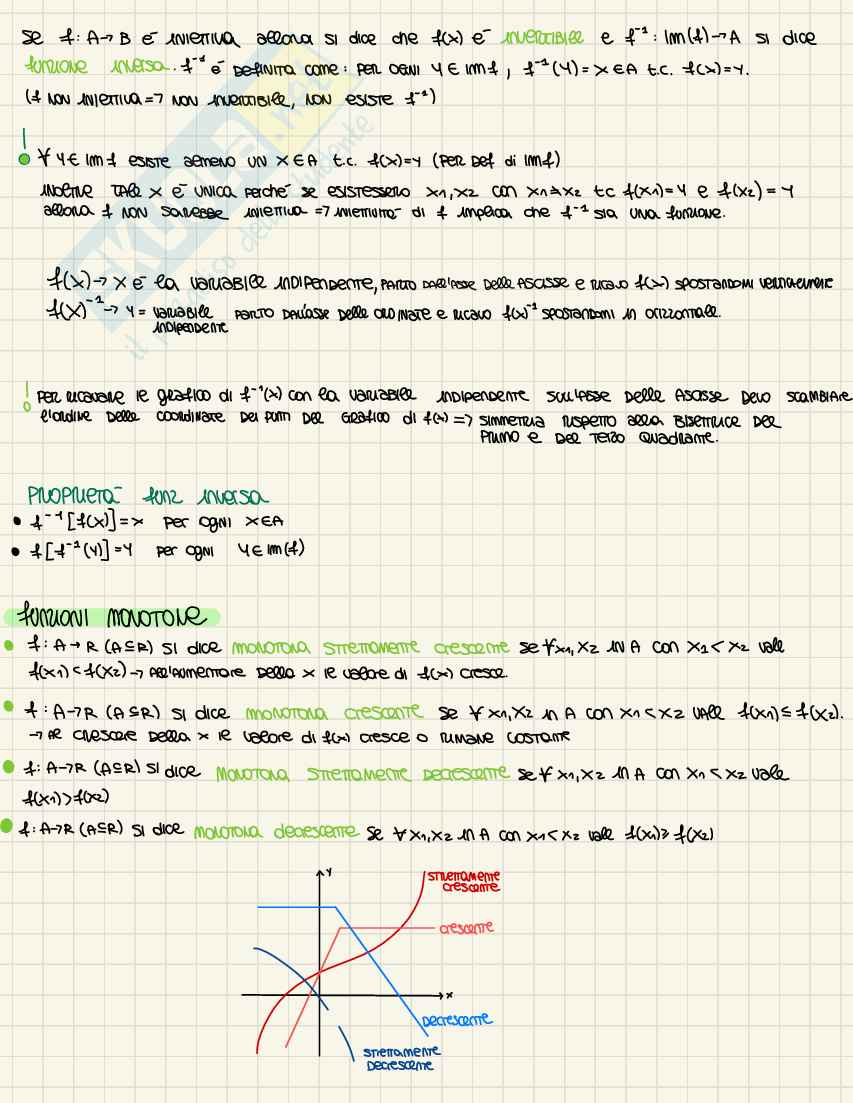 Se f: A→B è iniettiva allora si dice che f(x) è invertibile e f⁻¹: Im(f)→A si dice
funzione inversa. f⁻¹ è definita come: per ogni y ∈ Im f, f⁻¹(y) = x ∈ A t.c. f(x)=y.
(f non iniettiva => non invertibile, non esiste f⁻¹)
! ∀ y ∈ Im f esiste almeno un x ∈ A t.c. f(x)=y (per def di Im f)
inoltre tale x è unica perché se esistessero x1, x2 con x1≠x2 tc f(x1)=y e f(x2)=y
allora f non sarebbe iniettiva => iniettività di f implica che f⁻¹ sia una funzione.
f(x) → x è la variabile indipendente, parto dall'asse delle ascisse e ricavo f(x) spostandomi verticalmente
f(x)⁻¹ → y = variabile parto dall'asse delle ordinate e ricavo f(x)⁻¹ spostandomi in orizzontale.
indipendente
! Per ricavare il grafico di f⁻¹(x) con la variabile indipendente sull'asse delle ascisse devo scambiare
l'ordine delle coordinate dei punti del grafico di f(x) => simmetria rispetto alla bisettrice del
primo e del terzo quadrante.
Proprietà funz inversa
• f⁻¹[f(x)]=x per ogni x∈A
• f[f⁻¹(y)]=y per ogni y∈Im(f)
Funzioni monotone
• f: A→R (A⊆R) si dice monotona strettamente crescente se ∀x1, x2 in A con x1<x2 vale
f(x1)<f(x2) → all'aumentare della x il valore di f(x) cresce.
• f: A→R (A⊆R) si dice monotona crescente se ∀ x1, x2 in A con x1<x2 vale f(x1)≤f(x2).
→ al crescere della x il valore di f(x) cresce o rimane costante
• f: A→R (A⊆R) si dice monotona strettamente decrescente se ∀ x1, x2 in A con x1<x2 vale
f(x1)>f(x2)
• f: A→R (A⊆R) si dice monotona decrescente se ∀ x1, x2 in A con x1<x2 vale f(x1)≥f(x2)
y
strettamente
crescente
crescente
x
decrescente
strettamente
decrescente